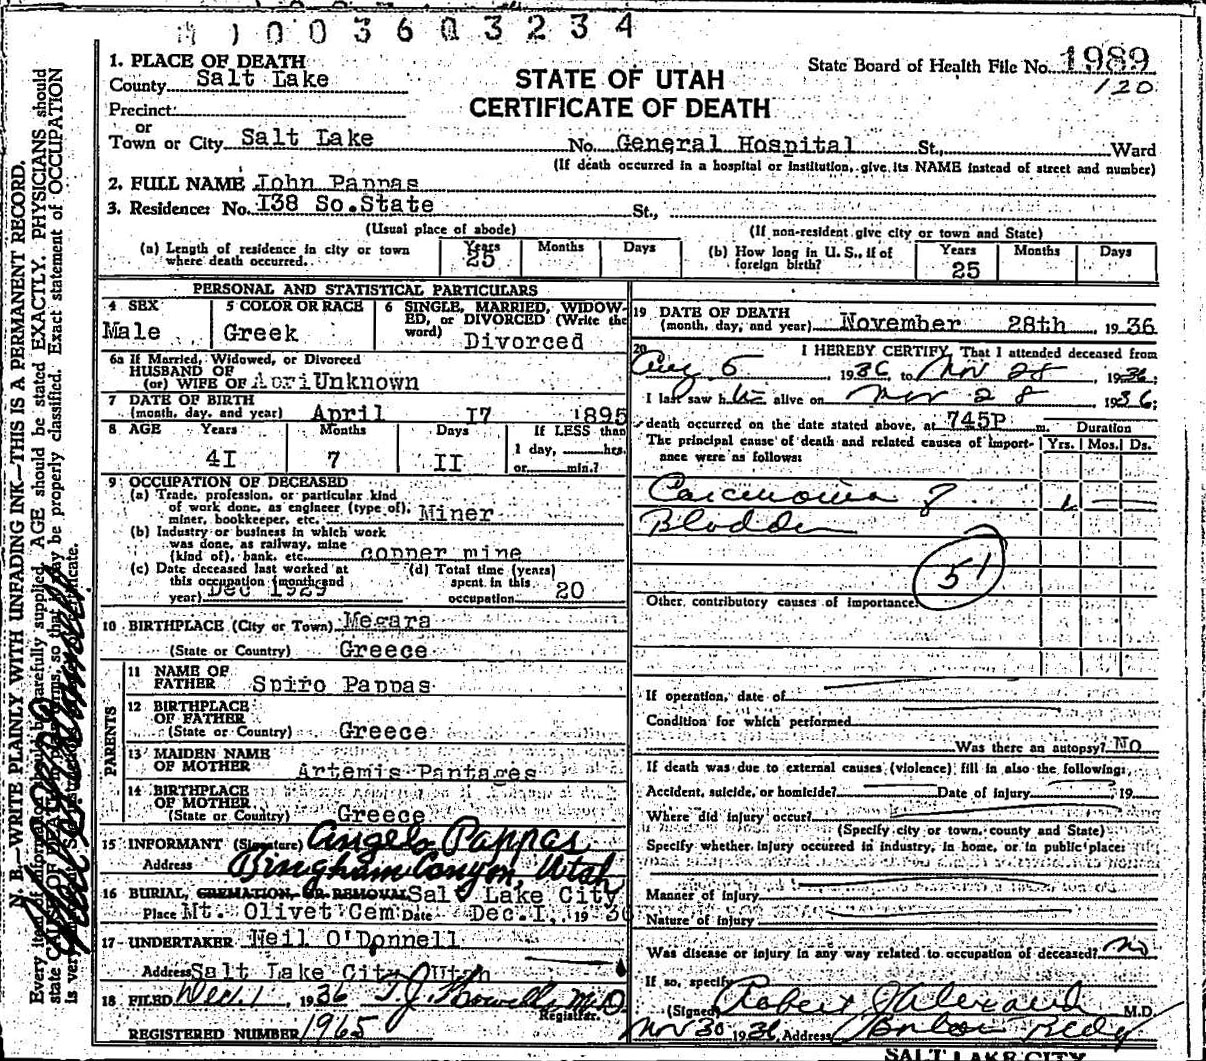 1003603234
1. PLACE OF DEATH
County Salt Lake
STATE OF UTAH
CERTIFICATE OF DEATH
State Board of Health File No. 1989
120
Precinct
or
Town or City Salt Lake No. General Hospital St., Ward
(If death occurred in a hospital or institution, give its NAME instead of street and number)
2. FULL NAME John Pappas
3. Residence: No. 138 So.State St.,
(Usual place of abode) (If non-resident give city or town and State)
(a) Length of residence in city or town where death occurred. Years 25 Months Days
(b) How long in U. S., if of foreign birth? Years 25 Months Days
PERSONAL AND STATISTICAL PARTICULARS
4 SEX Male
5 COLOR OR RACE Greek
6 SINGLE, MARRIED, WIDOWED, or DIVORCED (Write the word) Divorced
6a If Married, Widowed, or Divorced
HUSBAND OF
(or) WIFE OF Unknown
7 DATE OF BIRTH
(month, day, and year) April 17 1895
8 AGE Years Months Days If LESS than
41 7 11 1 day, hrs.
or min.?
9 OCCUPATION OF DECEASED
(a) Trade, profession, or particular kind
of work done, as engineer (type of),
miner, bookkeeper, etc. Miner
(b) Industry or business in which work
was done, as railway, mine
(kind of), bank, etc. copper mine
(c) Date deceased last worked at
this occupation (month and
year) Dec 1929
(d) Total time (years)
spent in this
occupation 20
10 BIRTHPLACE (City or Town) Megara
(State or Country) Greece
PARENTS
11 NAME OF
FATHER Spiro Pappas
12 BIRTHPLACE
OF FATHER
(State or Country) Greece
13 MAIDEN NAME
OF MOTHER Artemis Pantages
14 BIRTHPLACE
OF MOTHER
(State or Country) Greece
15 INFORMANT (Signature) Angelo Pappas
Address Bingham Canyon, Utah
16 BURIAL, CREMATION, OR REMOVAL Salt Lake City
Place Mt. Olivet Cem Date Dec.1, 1936
17 UNDERTAKER Neil O'Donnell
Address Salt Lake City, Utah
18 FILED Dec. 1, 1936 T. J. Howells M.D.
Registrar.
REGISTERED NUMBER 1965
19 DATE OF DEATH
(month, day, and year) November 28th, 1936
20 I HEREBY CERTIFY, That I attended deceased from
Aug 5, 1936, to Nov 28, 1936;
I last saw h alive on Nov 28 1936;
death occurred on the date stated above, at 745P m. Duration
The principal cause of death and related causes of importance were as follows: Yrs. Mos. Ds.
Carcinoma of
Bladder
51
Other contributory causes of importance.
If operation, date of
Condition for which performed
Was there an autopsy? No
If death was due to external causes (violence) fill in also the following:
Accident, suicide, or homicide? Date of injury 19
Where did injury occur?
(Specify city or town, county and State)
Specify whether injury occurred in industry, in home, or in public place:
Manner of injury
Nature of injury
Was disease or injury in any way related to occupation of deceased? no
If so, specify
(Signed) Robert J. Alexander M.D.
Nov 30 1936 Address Boston Bldg
SALT LAKE CITY
N. B.—WRITE PLAINLY WITH UNFADING INK—THIS IS A PERMANENT RECORD.
Every item of information should be carefully supplied. AGE should be stated EXACTLY. PHYSICIANS should
state CAUSE OF DEATH in plain terms, so that it may be properly classified. Exact statement of OCCUPATION
is very